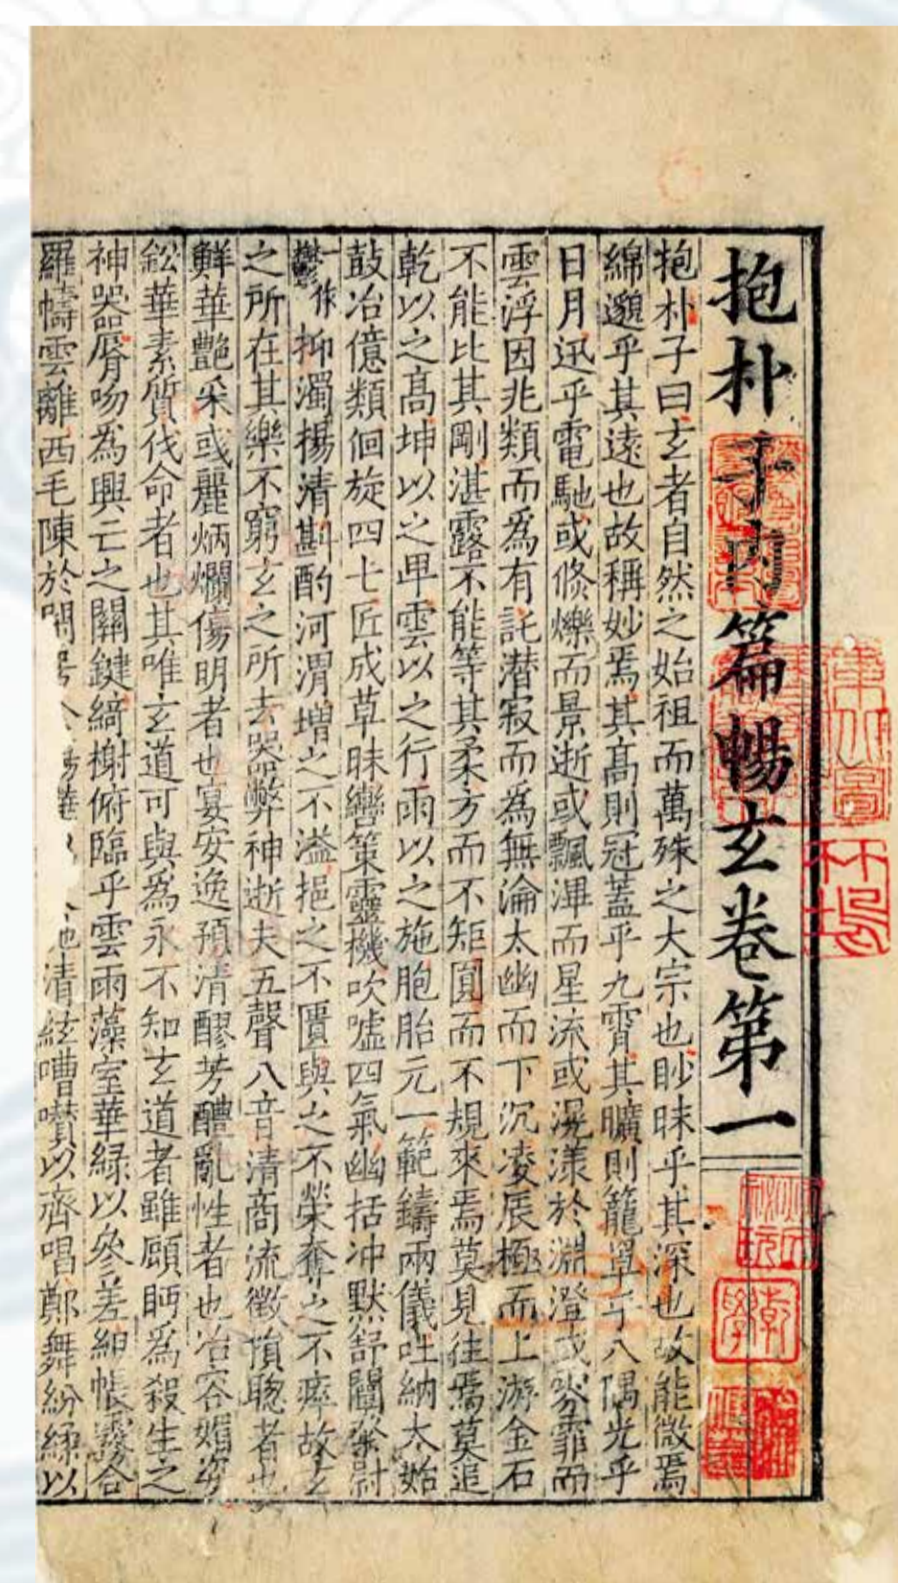 抱朴子内篇暢玄卷第一
抱朴子曰玄者自然之始祖而萬殊之大宗也眇昧乎其深也故能微焉
綿邈乎其遠也故稱妙焉其髙則冠蓋乎九霄其曠則籠罩乎八隅光乎
日月迅乎電馳或倐爍而景逝或飄滭而星流或滉漾於淵澄或雰霏而
雲浮因兆類而爲有託潜寂而爲無淪太幽而下沉凌辰極而上游金石
不能比其剛湛露不能等其柔方而不矩圓而不規來焉莫見往焉莫追
乾以之髙坤以之卑雲以之行雨以之施胞胎元一範鑄兩儀吐納太始
鼓冶億類佪旋四七匠成草昧轡策靈機吹嘘四氣幽括冲默舒闡粲尉
一作欝抑濁揚清斟酌河渭増之不溢挹之不匱與之不榮奪之不瘁故玄
之所在其樂不窮玄之所去器弊神逝夫五聲八音清商流徵損聰者也
鮮華艷采或麗炳爛傷明者也宴安逸預清醪芳醴亂性者也冶容媚姿
鈆華素質伐命者也其唯玄道可與爲永不知玄道者雖顧眄爲殺生之
神器脣吻爲興亡之關鍵綺榭俯臨乎雲雨藻室華緑以參差組帳霧合
羅幬雲離西毛陳於閒清絃嘈囋以齊唱鄭舞紛緑以
竹塢